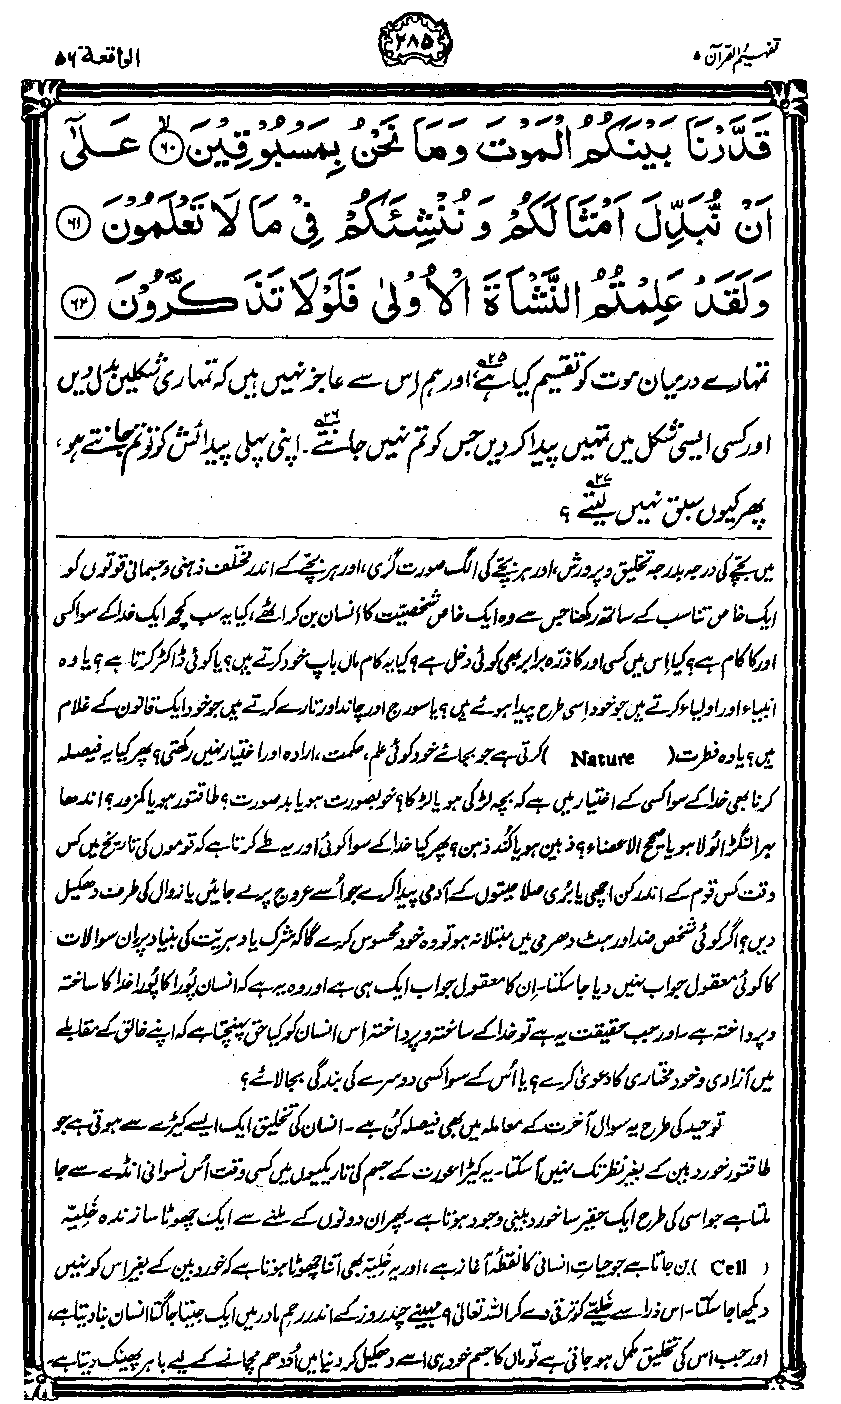 تفہیم القرآن ۵
۲۸۵
الواقعۃ ۵۶
قَدَّرْنَا بَيْنَكُمُ الْمَوْتَ وَمَا نَحْنُ بِمَسْبُوْقِيْنَ ﴿۶۰﴾ۙ عَلٰۤى
اَنْ نُّبَدِّلَ اَمْثَالَكُمْ وَ نُنْشِئَكُمْ فِیْ مَا لَا تَعْلَمُوْنَ ﴿۶۱﴾
وَ لَقَدْ عَلِمْتُمُ النَّشْاَةَ الْاُوْلٰى فَلَوْلَا تَذَكَّرُوْنَ ﴿۶۲﴾
تمہارے درمیان موت کو تقسیم کیا ہے۲۵، اور ہم اِس سے عاجز نہیں ہیں کہ تمہاری شکلیں بدل دیں
اور کسی ایسی شکل میں تمہیں پیدا کر دیں جس کو تم نہیں جانتے۲۶۔ اپنی پہلی پیدائش کو تو تم جانتے ہو،
پھر کیوں سبق نہیں لیتے۲۷ ؟
میں بچّے کی درجہ بدرجہ تخلیق و پرورش، اور ہر بچّے کی الگ صورت گری، اور ہر بچّے کے اندر مختلف ذہنی و جسمانی قوتوں کو
ایک خاص تناسب کے ساتھ رکھنا جس سے وہ ایک خاص شخصیّت کا انسان بن کر اٹھے، کیا یہ سب کچھ ایک خدا کے سوا کسی
اور کا کام ہے؟ کیا اِس میں کسی اور کا ذرّہ برابر بھی کوئی دخل ہے؟ کیا یہ کام ماں باپ خود کرتے ہیں؟ یا کوئی ڈاکٹر کرتا ہے؟ یا وہ
انبیاء اور اولیاء کرتے ہیں جو خود اِسی طرح پیدا ہوئے ہیں؟ یا سورج اور چاند اور تارے کرتے ہیں جو خود ایک قانون کے غلام
ہیں؟ یا وہ فطرت (Nature) کرتی ہے جو بجائے خود کوئی علم، حکمت، ارادہ اور اختیار نہیں رکھتی؟ پھر کیا یہ فیصلہ
کرنا بھی خدا کے سوا کسی کے اختیار میں ہے کہ بچہ لڑکی ہو یا لڑکا؟ خوبصورت ہو یا بدصورت؟ طاقتور ہو یا کمزور؟ اندھا
بہرا لنگڑا لُولا ہو یا صحیح الاعضاء؟ ذہین ہو یا کُند ذہن؟ پھر کیا خدا کے سوا کوئی اور یہ طے کرتا ہے کہ قوموں کی تاریخ میں کس
وقت کس قوم کے اندر کن اچھی یا بُری صلاحیتوں کے آدمی پیدا کرے جو اُسے عروج پر لے جائیں یا زوال کی طرف دھکیل
دیں؟ اگر کوئی شخص ضد اور ہٹ دھرمی میں مبتلا نہ ہو تو وہ خود محسوس کرے گا کہ شرک یا دہریّت کی بنیاد پر ان سوالات
کا کوئی معقول جواب نہیں دیا جا سکتا۔ اِن کا معقول جواب ایک ہی ہے اور وہ یہ ہے کہ انسان پُورا کا پُورا خدا کا ساختہ
و پرداختہ ہے۔ اور جب حقیقت یہ ہے تو خدا کے ساختہ و پرداختہ اِس انسان کو کیا حق پہنچتا ہے کہ اپنے خالق کے مقابلے
میں آزادی و خود مختاری کا دعویٰ کرے؟ یا اُس کے سوا کسی دوسرے کی بندگی بجا لائے؟
توحید کی طرح یہ سوال آخرت کے معاملہ میں بھی فیصلہ کُن ہے۔ انسان کی تخلیق ایک ایسے کیڑے سے ہوتی ہے جو
طاقتور خوردبین کے بغیر نظر تک نہیں آ سکتا۔ یہ کیڑا عورت کے جسم کی تاریکیوں میں کسی وقت اُس نسوانی انڈے سے جا
ملتا ہے جو اسی کی طرح ایک حقیر سا خوردبینی وجود ہوتا ہے۔ پھر ان دونوں کے ملنے سے ایک چھوٹا سا زندہ خَلِیّہ
(Cell) بن جاتا ہے جو حیاتِ انسانی کا نقطۂ آغاز ہے، اور یہ خَلِیّہ بھی اتنا چھوٹا ہوتا ہے کہ خوردبین کے بغیر اس کو نہیں
دیکھا جا سکتا۔ اس ذرا سے خَلِیّے کو ترقی دے کر اللہ تعالیٰ ۹ مہینے چند روز کے اندر رحمِ مادر میں ایک جیتا جاگتا انسان بنا دیتا ہے،
اور جب اس کی تخلیق مکمل ہو جاتی ہے تو ماں کا جسم خود ہی اسے دھکیل کر دنیا میں اُدھم مچانے کے لیے باہر پھینک دیتا ہے۔